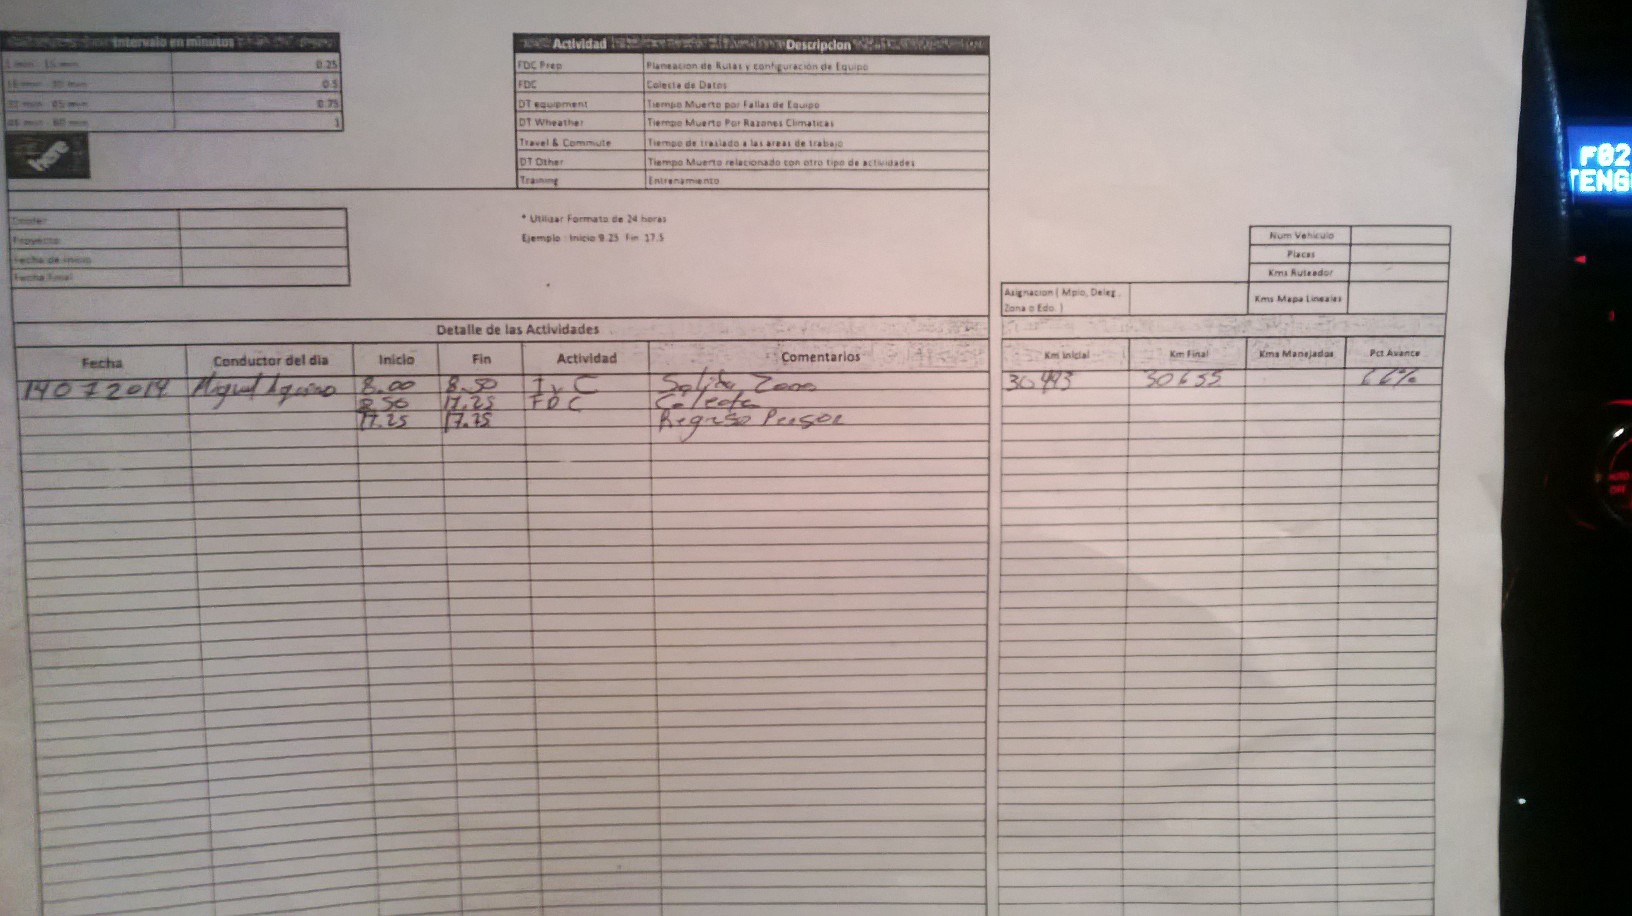 Intervalo en minutos
1 min - 15 min 0.25
16 min - 30 min 0.5
31 min - 45 min 0.75
46 min - 60 min 1
here
Actividad Descripcion
FDC Prep Planeacion de Rutas y configuración de Equipo
FDC Colecta de Datos
DT equipment Tiempo Muerto por Fallas de Equipo
DT Wheather Tiempo Muerto Por Razones Climaticas
Travel & Commute Tiempo de traslado a las areas de trabajo
DT Other Tiempo Muerto relacionado con otro tipo de actividades
Training Entrenamiento
Proyecto
Fecha de Inicio
Fecha Final
* Utilizar Formato de 24 horas
Ejemplo : Inicio 9.25 Fin 17.5
Num Vehiculo
Placas
Kms Ruteador
Kms Mapa Lineales
Asignacion ( Mpio, Deleg.,
Zona o Edo. )
Detalle de las Actividades
Fecha Conductor del dia Inicio Fin Actividad Comentarios Km Inicial Km Final Kms Manejados Pct Avance
14 07 2014 Miguel Aquino 8.00 8.50 T y C Salida Zona 30493 30655 66%
8.50 17.25 FDC Colecta
17.25 17.75 Regreso
F02
TENG
AUTO
OFF